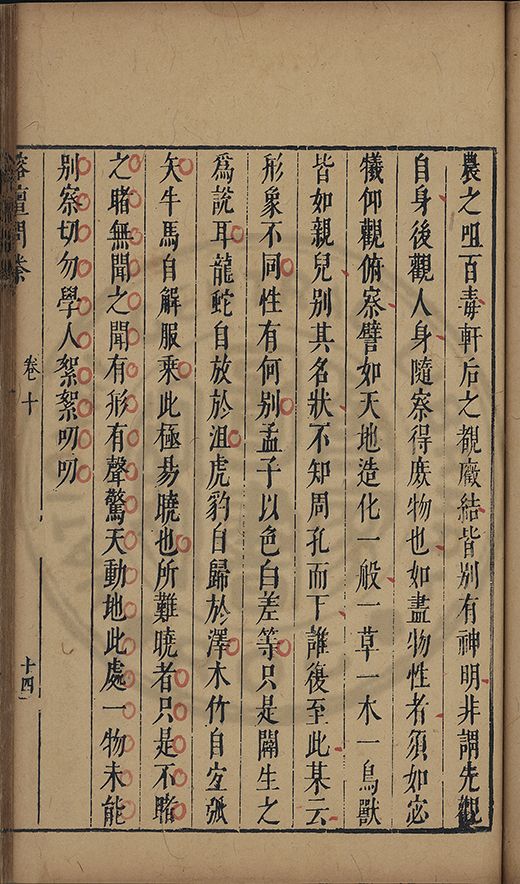 農之咀百毒軒后之覩癥結皆別有神明非謂先觀
自身後觀人身隨察得庶物也如盡物性者須如宓
犧仰觀俯察譬如天地造化一般一草一木一鳥獸
皆如親兒別其名狀不知周孔而下誰復至此某云
形象不同性有何別孟子以色白差等只是闢生之
爲說耳龍蛇自放於沮虎豹自歸於澤木竹自宜弧
矢牛馬自解服乘此極易曉也所難曉者只是不睹
之睹無聞之聞有形有聲驚天動地此處一物未能
別察切勿學人絮絮叨叨
榕壇問業
卷十
十四